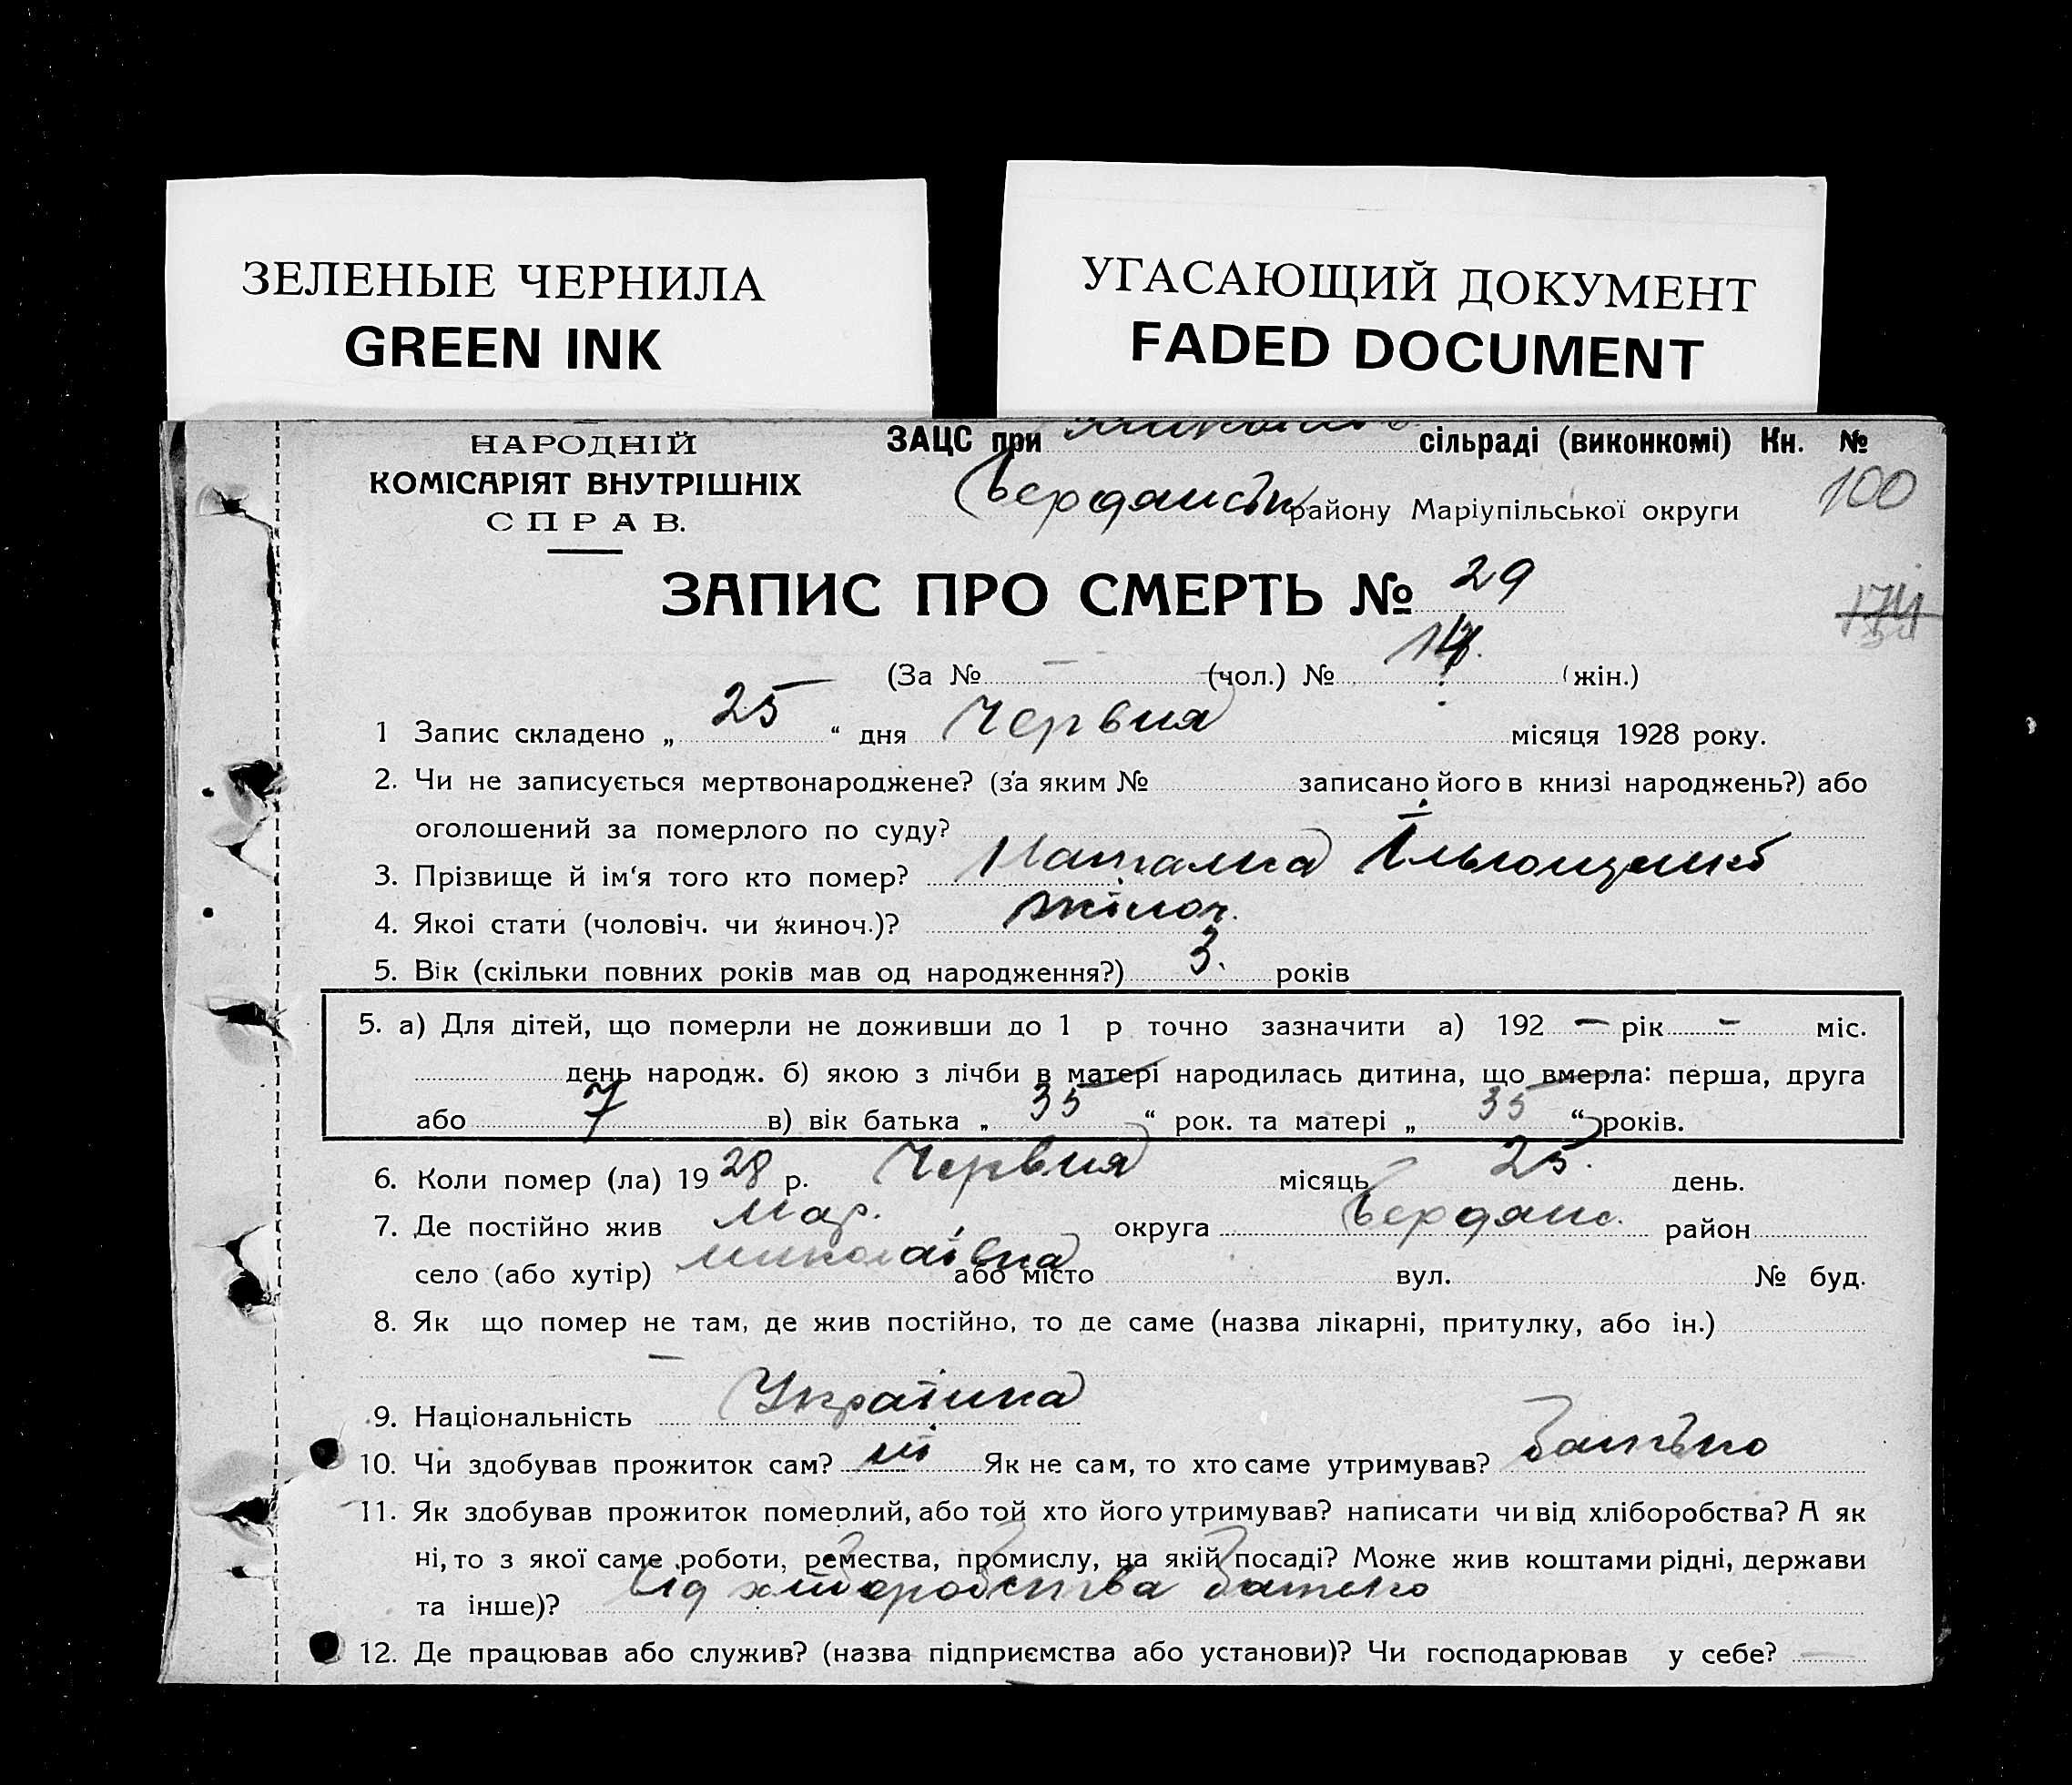 ЗЕЛЕНЫЕ ЧЕРНИЛА
GREEN INK
УГАСАЮЩИЙ ДОКУМЕНТ
FADED DOCUMENT
НАРОДНІЙ
КОМІСАРІЯТ ВНУТРІШНІХ
СПРАВ.
ЗАЦС при сільраді (виконкомі) Кн. №
Бердянськ району Маріупільської округи 100
ЗАПИС ПРО СМЕРТЬ № 29
174
(За № — (чол.) № (жін.)
1 Запис складено „ 25 “ дня Червня місяця 1928 року.
2. Чи не записується мертвонароджене? (за яким № записано його в книзі народжень?) або
оголошений за померлого по суду?
3. Прізвище й ім‘я того кто помер? Наталка
4. Якоі стати (чоловіч. чи жиноч.)? жіноч.
5. Вік (скільки повних років мав од народження?) 3. років
5. а) Для дітей, що померли не доживши до 1 р точно зазначити а) 192 — рік - міс.
день народж. б) якою з лічби в матері народилась дитина, що вмерла: перша, друга
або 7 в) вік батька „ 35 “ рок. та матері „ 35 “ років.
6. Коли помер (ла) 19 28 р. Червня місяць 25. день.
7. Де постійно жив Мар. округа Бердянс. район
село (або хутір) Миколаівка або місто вул. № буд.
8. Як що помер не там, де жив постійно, то де саме (назва лікарні, притулку, або ін.)
—
9. Національність Українка
10. Чи здобував прожиток сам? ні Як не сам, то хто саме утримував? Батько
11. Як здобував прожиток померлий, або той хто його утримував? написати чи від хліборобства? А як
ні, то з якої саме роботи, ремества, промислу, на якій посаді? Може жив коштами рідні, держави
та інше)? Від хліборобства батько
12. Де працював або служив? (назва підприємства або установи)? Чи господарював у себе? —